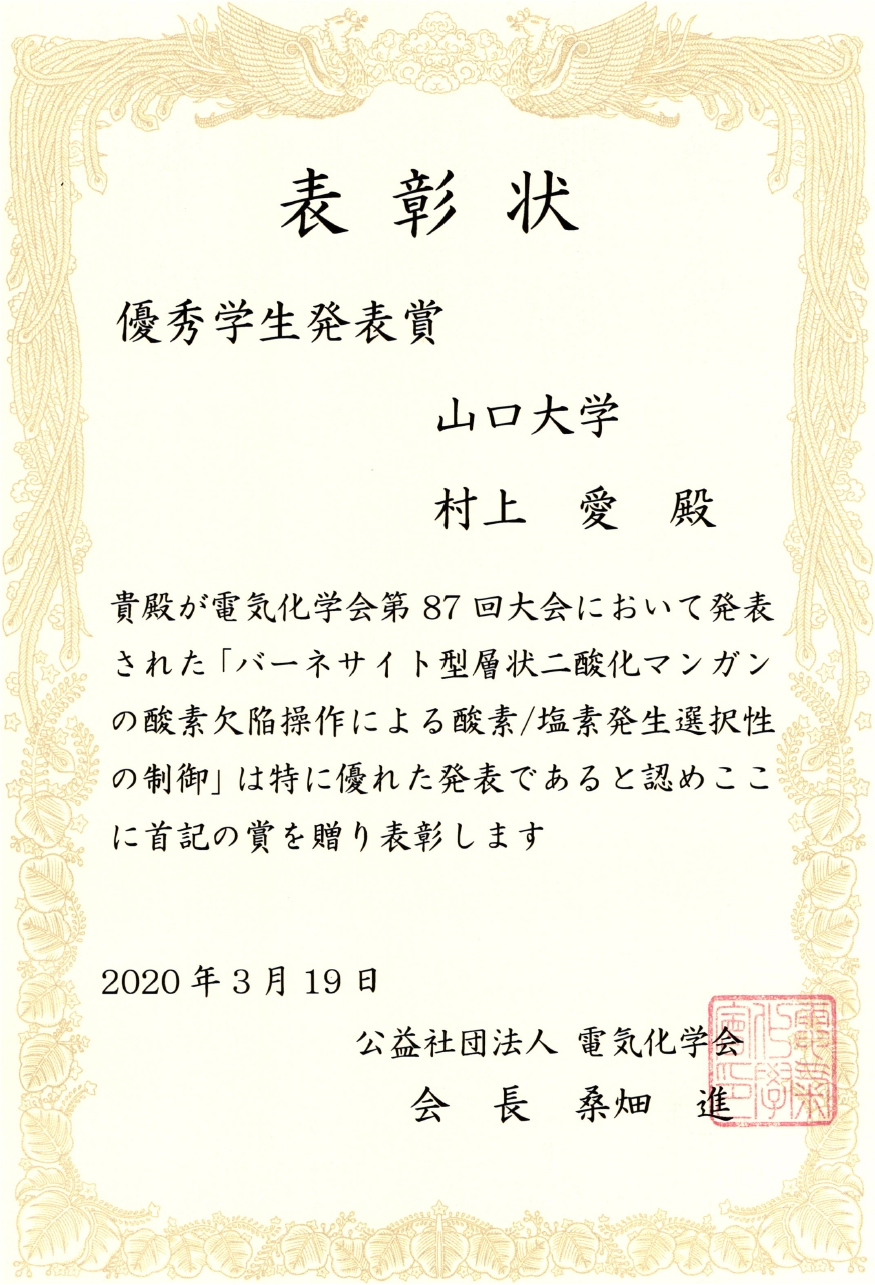 表彰状
優秀学生発表賞
山口大学
村上　愛　殿
貴殿が電気化学会第 87 回大会において発表
された「バーネサイト型層状二酸化マンガン
の酸素欠陥操作による酸素/塩素発生選択性
の制御」は特に優れた発表であると認めここ
に首記の賞を贈り表彰します
2020 年 3 月 19 日
公益社団法人 電気化学会
会　長　桑畑　進